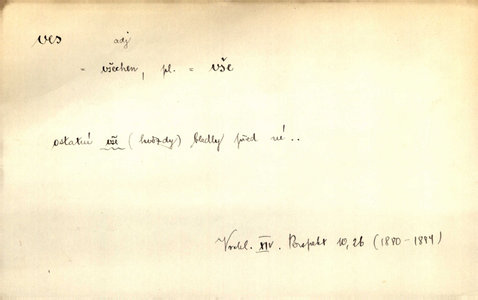 ves adj
= všechen, pl. = vše
ostatní vše (hvězdy) bledly před ní..
Vrchl. XIV. Perspekt 10,26 (1880-1884)